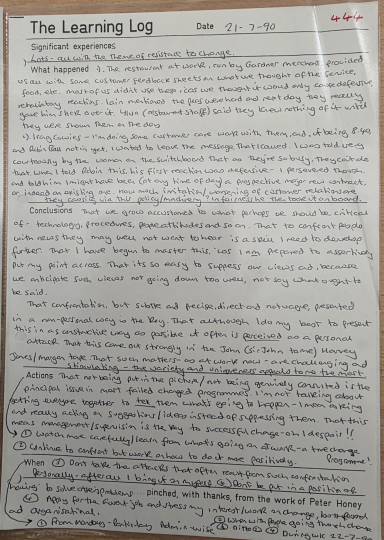 The Learning Log Date 21-7-90 444
Significant experiences
) Lots - all with the theme of resistance to change.
What happened ). The restaurant at work, run by Gardner merchant provided
us all with some customer feedback sheets on what we thought of the service,
food, etc. most of us didn't use these, cos we thought it would only cause defensive,
retaliatory reactions. Iain mentioned the ones we had and next day they really
gave him stick over it. (restaurant staff) said they knew nothing of it until
they were shown them on the day
I'm doing some customer care work with them, and, it being 8.40,
and Robin not in yet, I wanted to leave the message that I called. I was told very
courteously by the woman on the switchboard that as they're so busy, they can't do
that. When I told Robin this, his first reaction was defensive - I persevered though
and told him I might have been (at any time of day) a prospective major new contract
or indeed an existing one. How much irritation/worsening of customer relations are
they causing via this policy/madness? In fairness he then took it on board.
Conclusions That we grow accustomed to what perhaps we should be critical
of - technology, procedures, people, attitudes and so on. That to confront people
with news they may well not want to hear is a skill I need to develop
further. That I have begun to master this, cos I am prepared to assertively
put my point across. That it's so easy to suppress our views and, because
we anticipate such views not going down too well, not say what ought to
be said.
That confrontation, but subtle and precise, direct and not vague, presented
in a non-personal way is the key. That although I do my best to present
this in as constructive way as possible it often is perceived as a personal
attack. That this came out strongly in the John (Sir John to me) Harvey
Jones/Margan tape. That such matters - as at work now - are challenging and
stimulating - the variety and uniqueness appeals to me the most
Actions That not being put in the picture/not being genuinely consulted is the
principal issue in most failed change programmes. I'm not talking about
getting everyone together to tell them what's going to happen - I mean asking
and really acting on suggestions/ideas instead of suppressing them. That this
means management/supervision is the key to successful change - oh I despair!!
① Watch more carefully/learn from what's going on at work - a true change
② Continue to confront but work on how to do it more positively. Programme!
When ③ Don't take the attacks that often result from such confrontation
personally - after all I bring it on myself ④ Don't be put in a position of
having to solve others problems... pinched, with thanks, from the work of Peter Honey
Apply for the Kuwait job and stress my interest/work on change, both personal
and organisational. ② When with people going through change
① From Monday - Particularly Admin-wise ③ Ditto ④
During w/c 22-7-90